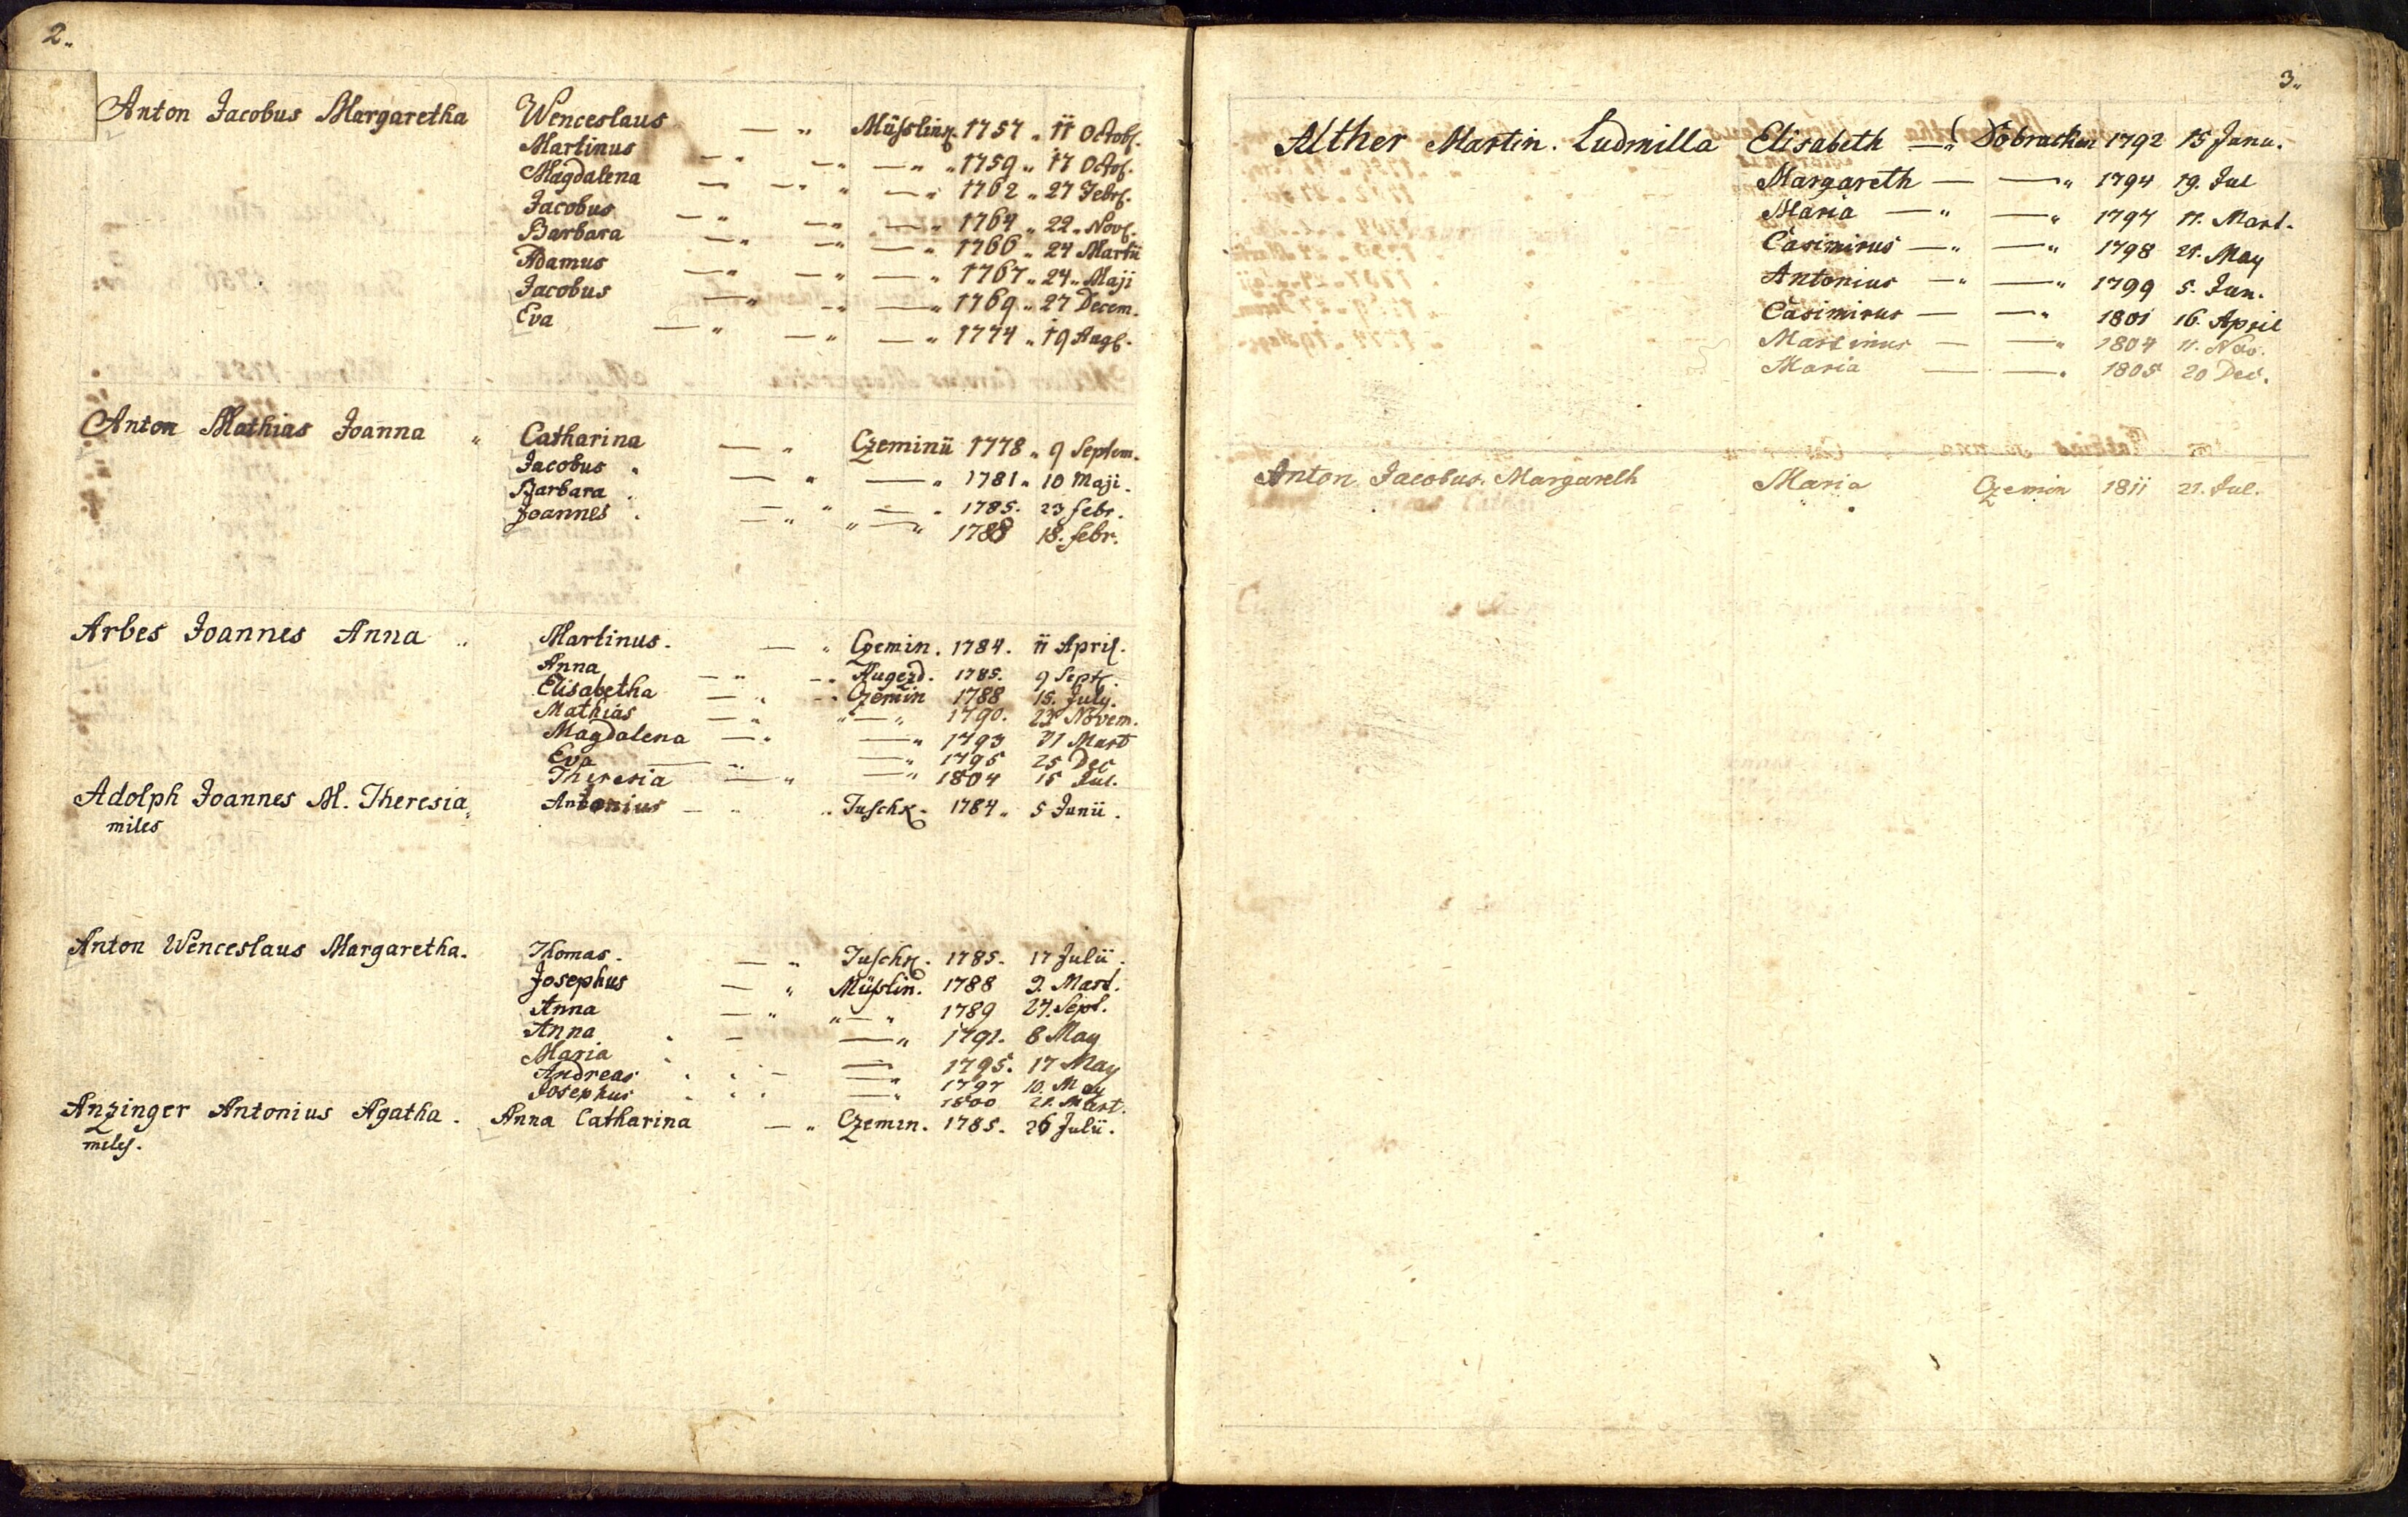 2.
Anton Jacobus Margaretha Wenceslaus — " Müsslinr. 1757 " 11 Octob.
Martinus — " — " — " " 1759 " 17 Octo.
Magdalena — — " " — " 1762 " 27 Febr.
Jacobus — " — " — " 1764 " 22 " Nov.
Barbara — " — " — " 1766 " 24 Martii
Adamus — " — " — " 1767 " 24 " Maji
Jacobus — " — " — " 1769 " 27 Decem.
Eva — " — " — " 1774 " 19 Aug.
Anton Mathias Joanna " Catharina — " Czeminii 1778 " 9 Septem.
Jacobus " — " — " 1781 " 10 Maji.
Barbara " — " — " 1785. 23 febr.
Joannes . — " " — " 1788 18. febr.
Arbes Joannes Anna " Martinus. — " Czemin. 1784. 11 April.
Anna — " — " Augezd. 1785. 9 Sept.
Elisabetha — " — " Czemin 1788 15. July.
Mathias — " " — " 1790. 23 Novem.
Magdalena — " — " 1793 21 Mart
Eva — " — " 1795 25 Dec
Theresia — " — " 1804 15 Jul.
Adolph Joannes M. Theresia " Antonius — " " Tuschk. 1784 " 5 Junii.
miles
Anton Wenceslaus Margaretha. Thomas. — " Tuschk. 1785. 17 Julii.
Josephus — " Müsslin. 1788 9. Mart.
Anna — " " — " 1789 27. Sept.
Anna . — — " 1791. 8 May
Maria . . — — 1795. 17 May
Andreas . . — — " 1797 10. May
Josephus . . . — " 1800 21. Mart.
Anzinger Antonius Agatha. Anna Catharina — " Czemin. 1785. 26 Julii.
miles.
3.
Alther Martin. Ludmilla Elisabeth — " Dobracken 1792 15 Janu.
Margareth — — " 1794 19. Jul
Maria — " — " 1797 11. Mart.
Casimirus — " — " 1798 21. May
Antonius — " — " 1799 5. Jun.
Casimirus — — " 1801 16. April
Martinus — — " 1804 11. Nov.
Maria — — " 1805 20 Dec.
Anton Jacobus Margareth Maria Czemin 1811 21. Jul.